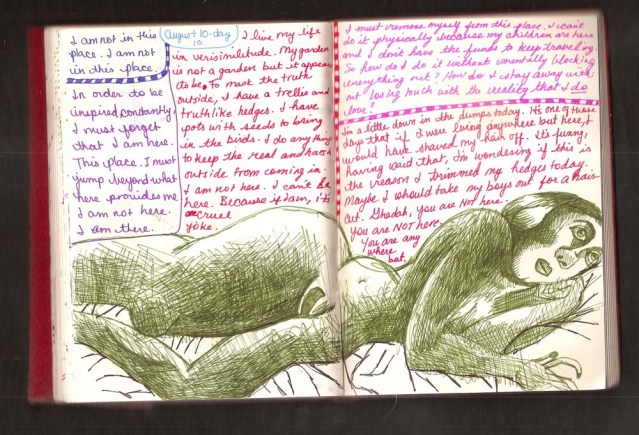 I am not in this
place. I am not
in this place.
In order to be
inspired constantly,
I must forget
that I am here.
This place. I must
jump beyond what
here provides me
I am not here.
I am there.
August 10-day
10
I live my life
in verisimilitude. My garden
is not a garden but it appears
to be. To mask the truth
outside, I have a trellis and
truthlike hedges. I have
pots with seeds to bring
in the birds. I do anything
to keep the real and harsh
outside from coming in.
I am not here. I can't be
here. Because if I am, it's
a cruel
yoke.
I must remove myself from this place. I can't
do it physically because my children are here
and I don't have the funds to keep traveling.
So how do I do it without mentally blocking
everything out? How do I stay away with
out losing touch with the reality that I do
love?
I'm a little down in the dumps today. It's one of those
days that if I were living anywhere but here, I
would have shaved my hair off. It's funny,
having said that, I'm wondering if this is
the reason I trimmed my hedges today.
Maybe I should take my boys out for a hair-
cut. Ghadah, you are Not here.
You are Not here
You are any
where
but.